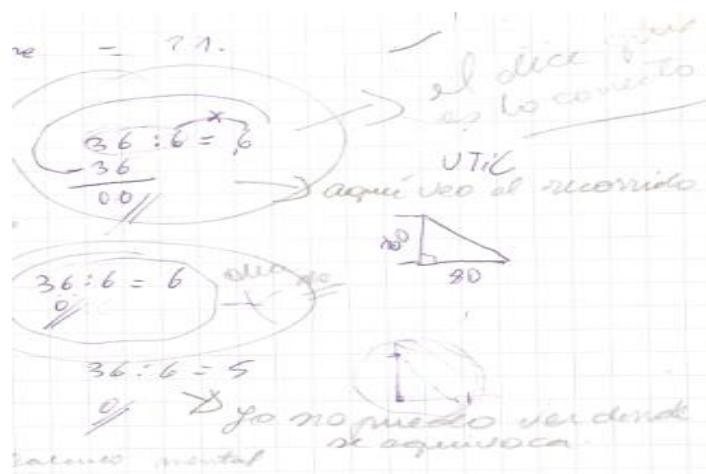 = 21.
el dice que
es lo correcto
x
36 : 6 = 6
- 36
00
UTiL
aquí veo el recorrido
80
36 : 6 = 6
0
36 : 6 = 5
0
Yo no puedo ver donde
se equivoca.
mental